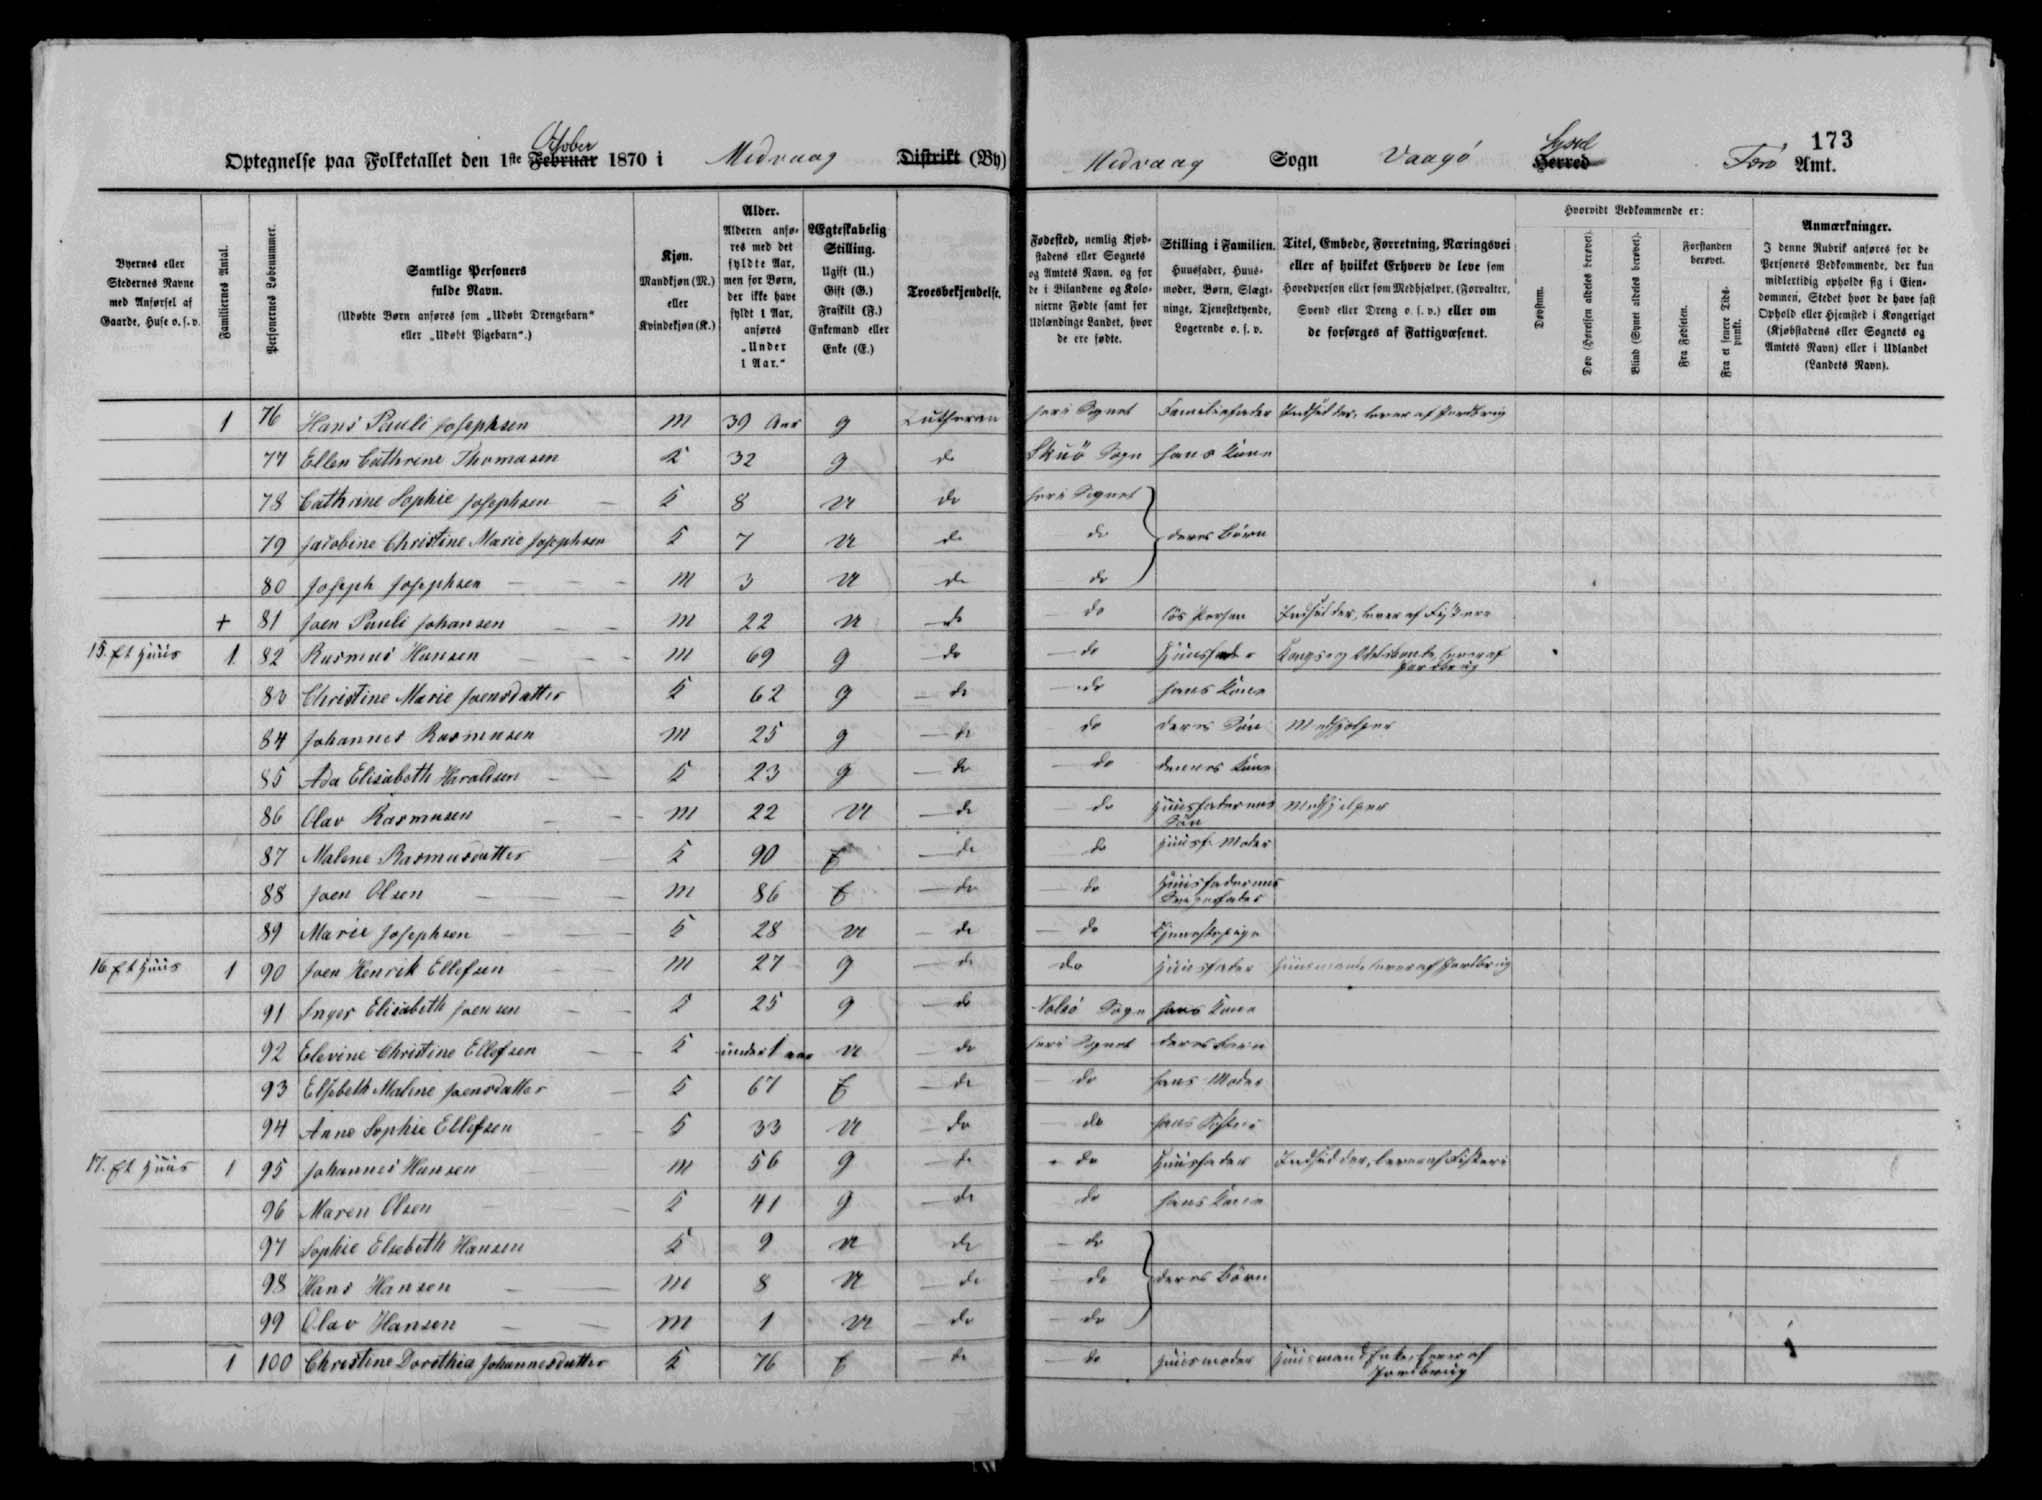 173
Optegnelse paa Folketallet den 1ste Februar October 1870 i Medvaag Distrikt (By) Medvaag Sogn Vaagø Herred Syssel Færø Amt.
Byernes eller Stedernes Navne med Anførsel af Gaarde, Huse o. s. v.
Familiernes Antal.
Personernes Løbenummer.
Samtlige Personers fulde Navn.
(Udøbte Børn anføres som „Udøbt Drengebarn" eller „Udøbt Pigebarn".)
Kjøn.
Mandkjøn (M.) eller Kvindekjøn (K.)
Alder.
Alderen anføres med det fyldte Aar, men for Børn, der ikke have fyldt 1 Aar, anføres „Under 1 Aar."
Ægteskabelig Stilling.
Ugift (U.) Gift (G.) Fraskilt (F.) Enkemand eller Enke (E.)
Troesbekjendelse.
Fødested, nemlig Kjøbstadens eller Sognets og Amtets Navn, og for de i Bilandene og Kolonierne Fødte samt for Udlændinge Landet, hvor de ere fødte.
Stilling i Familien.
Huusfader, Huusmoder, Børn, Slægtninge, Tjenestetyende, Logerende o. s. v.
Titel, Embede, Forretning, Næringsvei eller af hvilket Erhverv de leve som Hovedperson eller som Medhjælper, (Forvalter, Svend eller Dreng o. s. v.) eller om de forsørges af Fattigvæsenet.
Hvorvidt Vedkommende er:
Døvstum.
Døv (Hørelsen aldeles berøvet).
Blind (Synet aldeles berøvet).
Forstanden berøvet.
Fra Fødselen.
Fra et senere Tidspunkt.
Anmærkninger.
I denne Rubrik anføres for de Personers Vedkommende, der kun midlertidig opholde sig i Eiendommen, Stedet hvor de have fast Ophold eller Hjemsted i Kongeriget (Kjøbstadens eller Sognets og Amtets Navn) eller i Udlandet (Landets Navn).
1 76 Hans Pauli Josephsen M 39 Aar g Lutheran her i Sognet Familiefader Indsidder, lever af Jordbrug
77 Ellen Cathrine Thomasen K 32 g do Skuö Sogn hans Kone
78 Cathrine Sophie Josephsen K 8 U do her i Sognet
79 Jacobine Christine Marie Josephsen K 7 U do do deres Børn
80 Joseph Josephsen M 3 U do do
+ 81 Joen Pauli Johansen M 22 U do do løs Person Indsidder, lever af Fiskeri
15. Et Huus 1 82 Rasmus Hansen M 69 g do do Huusfader Kongs og Odelsbonde lever af Jordbrug
83 Christine Marie Joensdatter K 62 g do do hans Kone
84 Johannes Rasmusen M 25 g do do deres Søn Medhjelper
85 Ada Elisabeth Haraldsen K 23 g do do dennes Kone
86 Olav Rasmusen M 22 U do do Huusfaderens Søn Medhjelper
87 Malene Rasmusdatter K 90 E do do Huusf. Moder
88 Joen Olsen M 86 E do do Huusfaderens Svigerfader
89 Marie Josephsen K 28 U do do Tjenestepige
16 Et Huus 1 90 Joen Henrik Ellefsen M 27 g do do Huusfader Huusmand lever af Jordbrug
91 Inger Elisabeth Joensen K 25 g do Nolsö Sogn hans Kone
92 Elevine Christine Ellefsen K under 1 aar U do her i Sognet deres barn
93 Elsebeth Malene Joensdatter K 67 E do do hans Moder
94 Anne Sophie Ellefsen K 33 U do do hans Søster
17. Et Huus 1 95 Johannes Hansen M 56 g do do Huusfader Indsidder, lever af Fiskeri
96 Maren Olsen K 41 g do do hans Kone
97 Sophie Elsebeth Hansen K 9 U do do
98 Hans Hansen M 8 U do do deres Børn
99 Olav Hansen M 1 U do do
1 100 Christine Dorethea Johannesdatter K 76 E do do Huusmoder Huusmands Enke, lever af Jordbrug